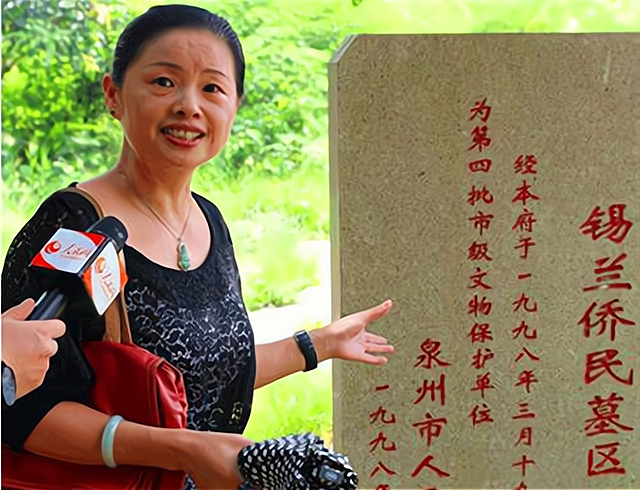 锡兰侨民墓区
经本府于一九九八年三月十
为第四批市级文物保护单位
泉州市人
一九九八年
人民网